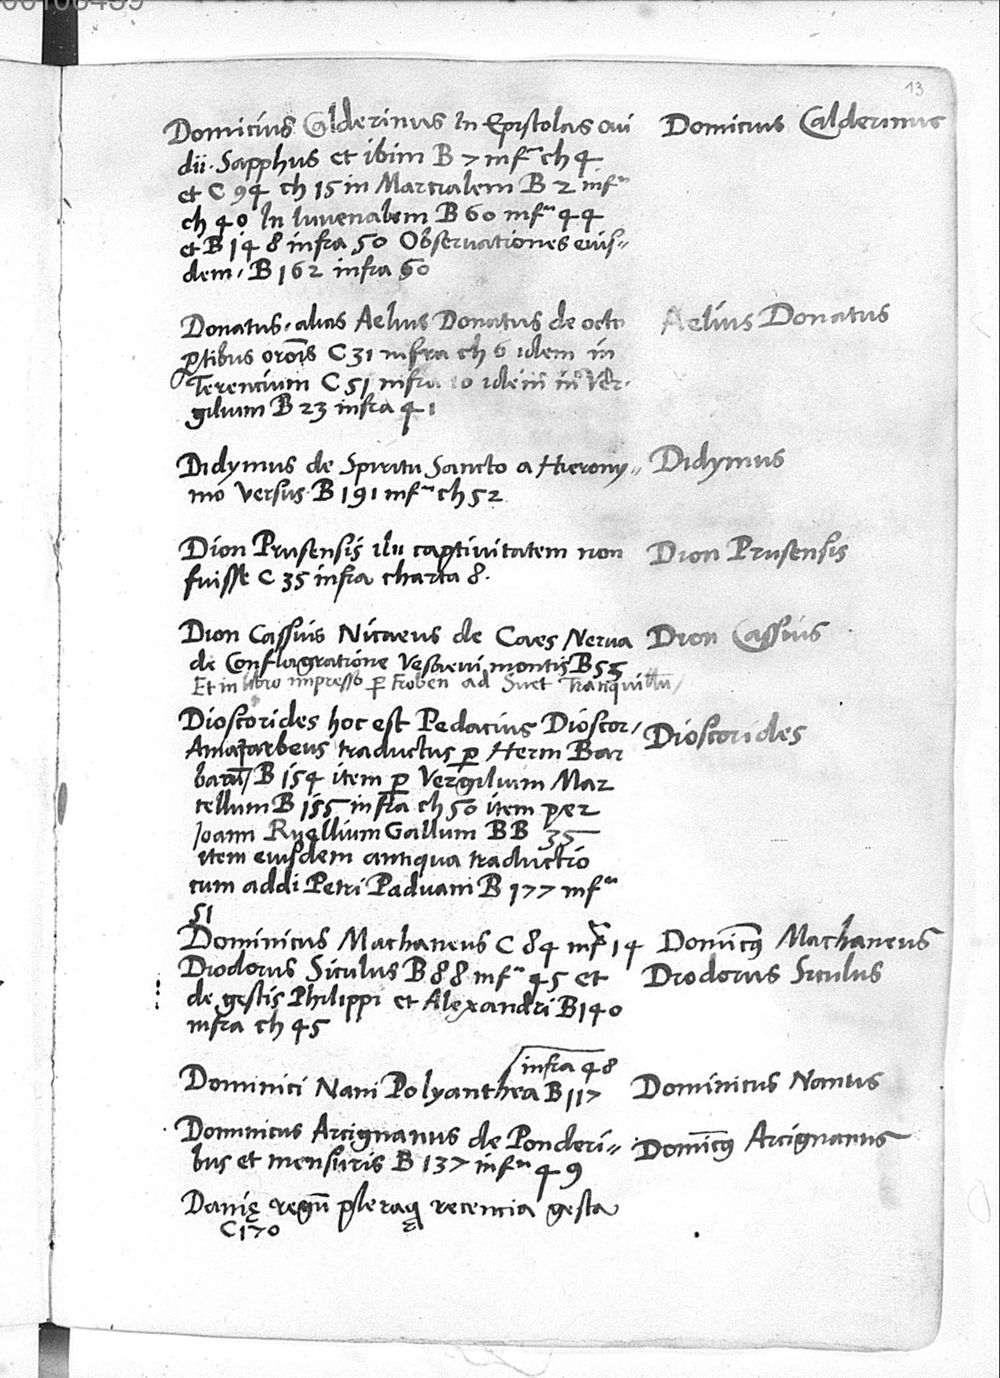 13
Domicius Calderinus In Epistolas oui
dii. Sapphus et ibim B 7 infª ch 4
et C 94 ch 15 in Martialem B 2 infª
ch 40 In Iuvenalem B 60 infª 44
et B 148 infra 50 Observationes eius=
dem. B 162 infra 60
Domicius Calderinus
Donatus. alias Aelius Donatus de octo
ꝑtibus orōis C 31 infra ch 6 idem in
Terentium C 51 infra 10 idem in Ver-
gilium B 23 infra 41
Aelius Donatus
Didymus de Spiritu Sancto a Hierony=
mo versus B 191 infª ch 52
Didymus
Dion Prusensis ilii captivitatem non
fuisse C 35 infra charta 8.
Dion Prusensis
Dion Cassius Nicaeus de Caes Nerva
de Conflagratione Vesaevi montis B 55
Et in libro impresso ꝑ Froben ad Suet Tranquillū
Dion Cassius
Dioscorides hoc est Pedacius Dioscor/
traductus ꝑ Herm Bar
barū/ B 154 item ꝑ Vergilium Mar
cellum B 155 infra ch 50 item per
Joann Ruellium Gallum BB 35
item eiusdem antiqua traductio
cum addi Petri Paduani B 177 infª
51
Dioscorides
Dominicus Machaneus C 84 infª 14
Domīcꝰ Machaneus
Diodorus Siculus B 88 infª 45 et
de gestis Philippi et Alexandri B 140
infra ch 45
Diodorus Siculus
infra 48
Dominici Nani Polyanthea B 117
Dominicus Nanus
Dominicus Arcignanus de Ponderi=
bus et mensuris B 137 infª 49
Domīcꝰ Arcignanus
Danię regū pleraꝗ recentia gesta
C 170